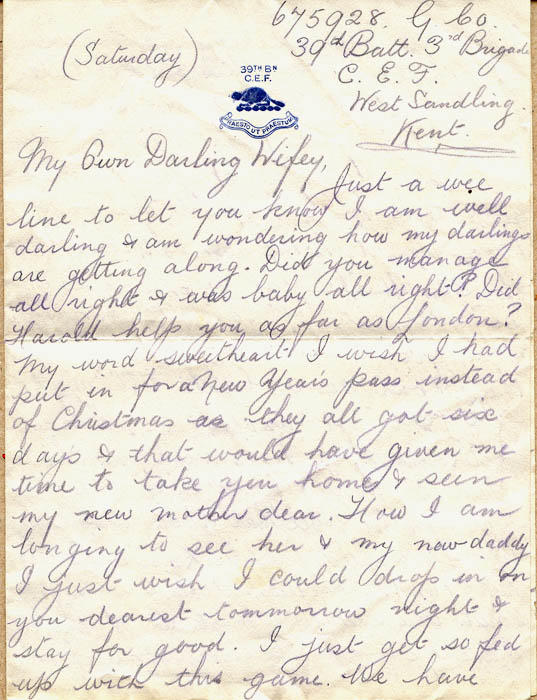 675928. G. Co.
(Saturday)
39th Batt. 3rd Brigade
C. E. F.
West Sandling.
Kent.
39TH BN
C.E.F.
PRAESTO UT PRAESTEM
My Own Darling Wifey,
Just a wee
line to let you know I am well
darling & am wondering how my darlings
are getting along. Did you manage
all right & was baby all right? Did
Harold help you as far as London?
My word sweetheart I wish I had
put in for a New Year's pass instead
of Christmas as they all got six
days & that would have given me
time to take you home & seen
my new mother dear. How I am
longing to see her & my new daddy
I just wish I could drop in on
you dearest tommorrow night &
stay for good. I just get so fed
up with this game. We have